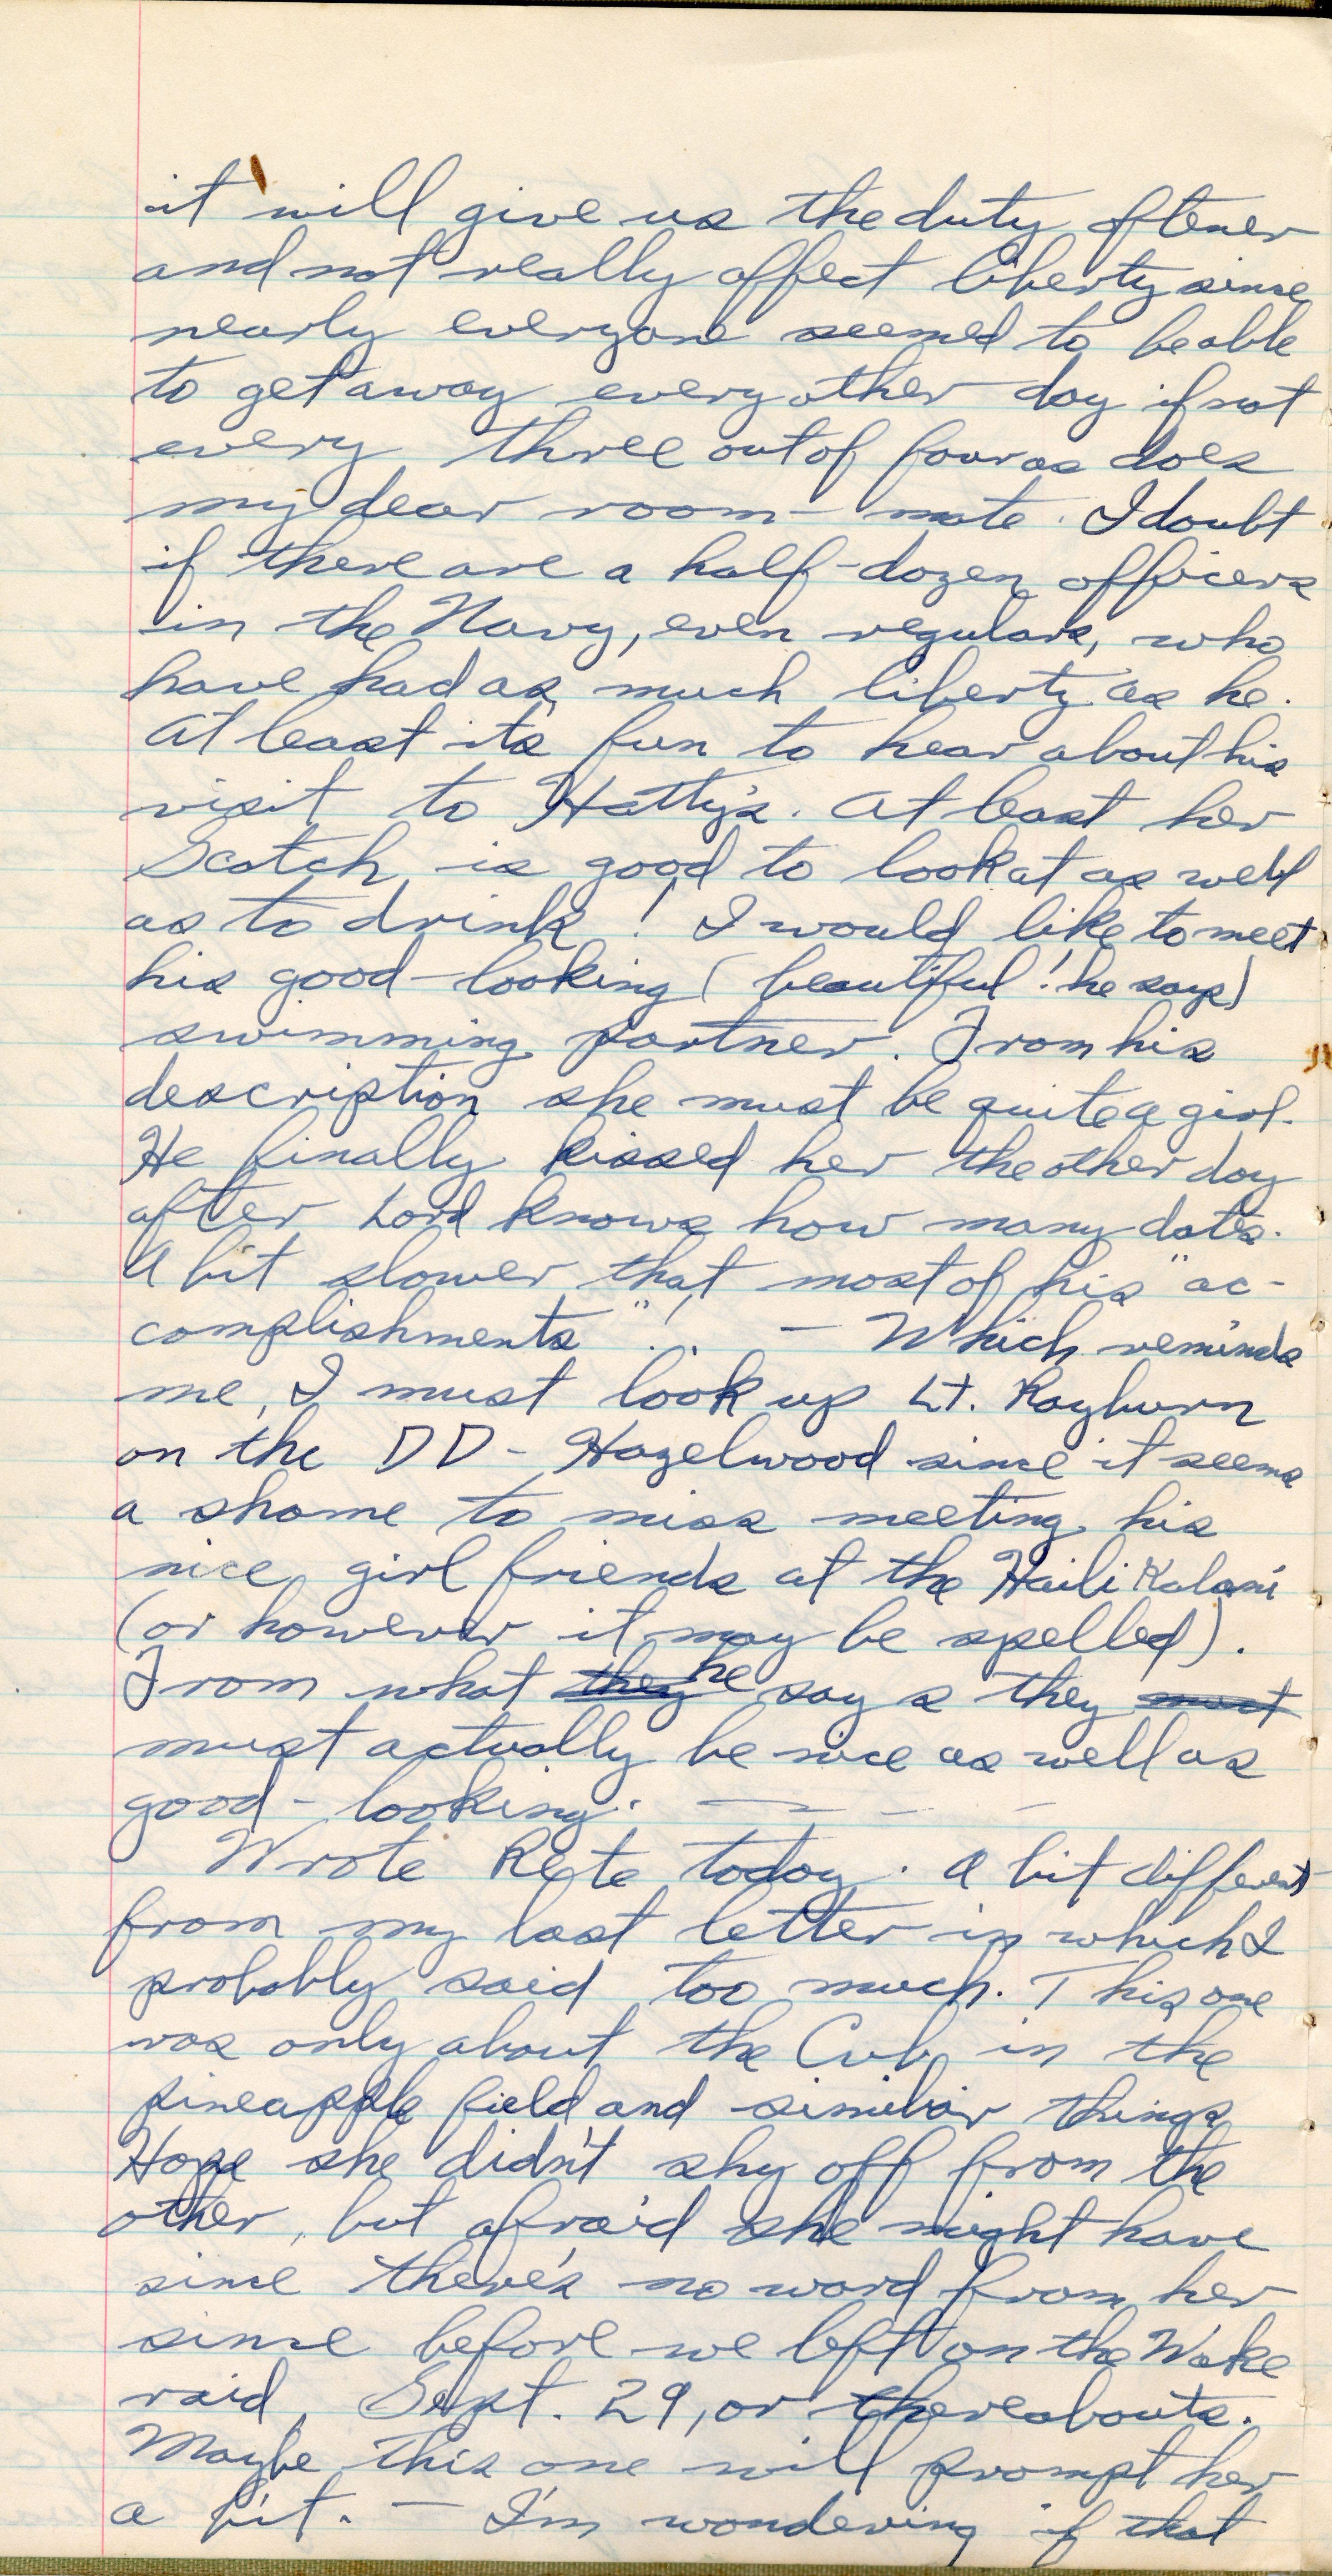 it will give us the duty oftener
and not really affect liberty since
nearly everyone seemed to be able
to get away every other day if not
every three out of four as does
my dear room-mate. I doubt
if there are a half-dozen officers
in the Navy, even regulars, who
have had as much liberty as he.
At least it's fun to hear about his
visit to Hatty's. At least her
Scotch is good to look at as well
as to drink! I would like to meet
his good-looking (beautiful! he says)
swimming partner. From his
description she must be quite a girl.
He finally kissed her the other day
after Lord knows how many dates.
A bit slower that most of his "ac-
complishments"! - Which reminds
me, I must look up Lt. Rayburn
on the DD-Hazelwood since it seems
a shame to miss meeting his
nice girl friends at the Haili Kalani
(or however it may be spelled).
From what ~~they~~ he says they ~~must~~
must actually be nice as well as
good-looking. — — —
Wrote Kate today. A bit different
from my last letter in which I
probably said too much. This one
was only about the Cub in the
pineapple field and similiar things
Hope she didn't shy off from the
other, but afraid she might have
since there's no word from her
since before we left on the Wake
raid, Sept. 29, or thereabouts.
Maybe this one will prompt her
a bit. - I'm wondering if that